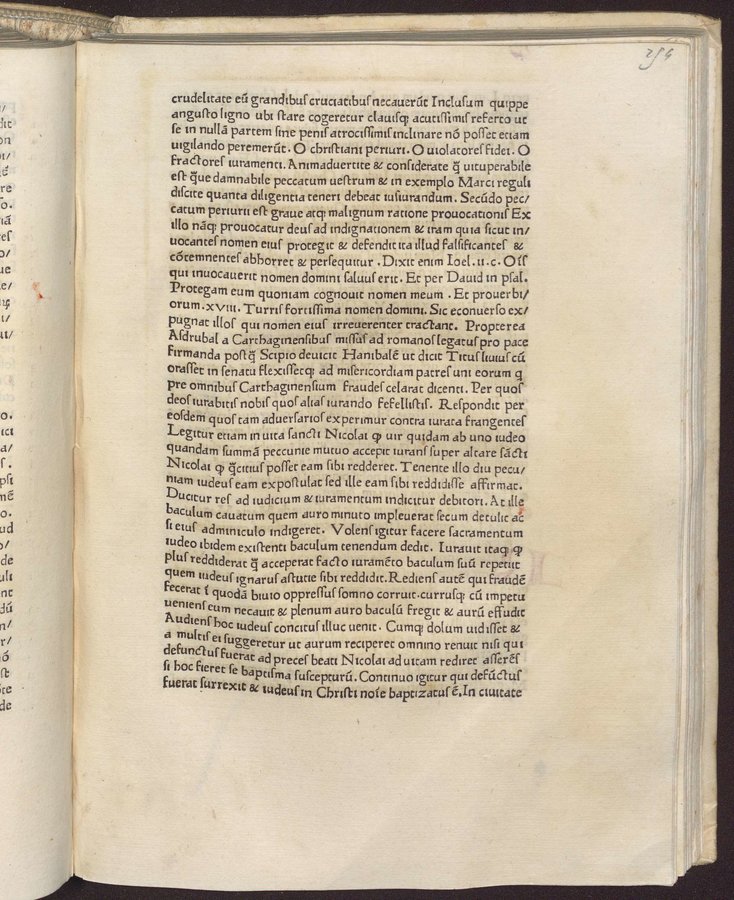 256
crudelitate eū grandibus cruciatibus necauerūt Inclusum quippe
angusto ligno ubi stare cogeretur clauisq; acutissimis referto ut
se in nullā partem sine penis atrocissimis inclinare nō posset etiam
uigilando peremerūt. O christiani periuri. O uiolatores fidei. O
fractores iuramenti. Animaduertite & considerate q̄ uituperabile
est q̄ue damnabile peccatum uestrum & in exemplo Marci reguli
discite quanta diligentia teneri debeat iusiurandum. Secūdo pec/
catum periurii est graue atq; malignum ratione prouocationis Ex
illo nāq; prouocatur deus ad indignationem & iram quia sicut in/
uocantes nomen eius protegit & defendit ita illud falsificantes &
cōtemnentes abhorret & persequitur. Dixit enim Ioel.ii.c. Oīs
qui inuocauerit nomen domini saluus erit. Et per Dauid in psal.
Protegam eum quoniam cognouit nomen meum. Et prouerbi/
orum.xviii. Turris fortissima nomen domini. Sic econuerso ex/
pugnat illos qui nomen eius irreuerenter tractant. Propterea
Asdrubal a Carthaginensibus missus ad romanos legatus pro pace
firmanda postq̄ Scipio deuicit Hanibalē ut dicit Titus liuius cū
orasset in senatu flexissetq; ad misericordiam patres uni eorum q
pre omnibus Carthaginensium fraudes celarat dicenti. Per quos
deos iurabitis nobis quos alias iurando fefellistis. Respondit per
eosdem quos tam aduersarios experimur contra iurata frangentes
Legitur etiam in uita sancti Nicolai ꝙ uir quidam ab uno iudeo
quandam summā peccunie mutuo accepit iurans super altare sācti
Nicolai ꝙ q̄citius posset eam sibi redderet. Tenente illo diu pecu/
niam iudeus eam expostulat sed ille eam sibi reddidisse affirmat.
Ducitur res ad iudicium & iuramentum indicitur debitori. At ille
baculum cauatum quem auro minuto impleuerat secum detulit ac
si eius adminiculo indigeret. Volens igitur facere sacramentum
iudeo ibidem existenti baculum tenendum dedit. Iurauit itaq; ꝙ
plus reddiderat q̄ acceperat facto iuramēto baculum suū repetiit
quem iudeus ignarus astutie sibi reddidit. Rediens autē qui fraudē
fecerat ī quodā biuio oppressus somno corruit. currusq; cū impetu
ueniens eum necauit & plenum auro baculū fregit & aurū effudit
Audiens hoc iudeus concitus illuc uenit. Cumq; dolum uidisset &
a multis ei suggeretur ut aurum reciperet omnino renuit nisi qui
defunctus fuerat ad preces beati Nicolai ad uitam rediret asserēs
si hoc fieret se baptisma suscepturū. Continuo igitur qui defūctus
fuerat surrexit & iudeus in Christi noīe baptizatus ē. In ciuitate